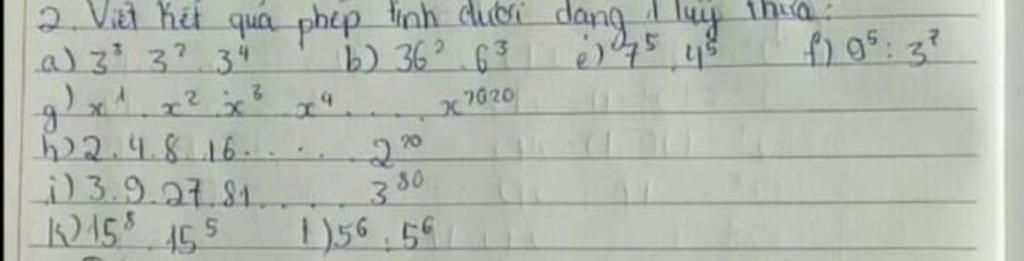 2. Viết kết quả phép tính dưới dạng 1 luỹ thừa:
a) 3³ 3² 3⁴ b) 36² . 6³ e) 7⁵ . 4⁵ f) 9⁵ : 3⁷
g) x¹ . x² . x³ x⁴ . . . . x²⁰²⁰
h) 2 . 4 . 8 . 16 . . . . . 2²⁰
i) 3 . 9 . 27 . 81 . . . . . 3⁸⁰
k) 15⁸ 15⁵ l) 5⁶ : 5⁶